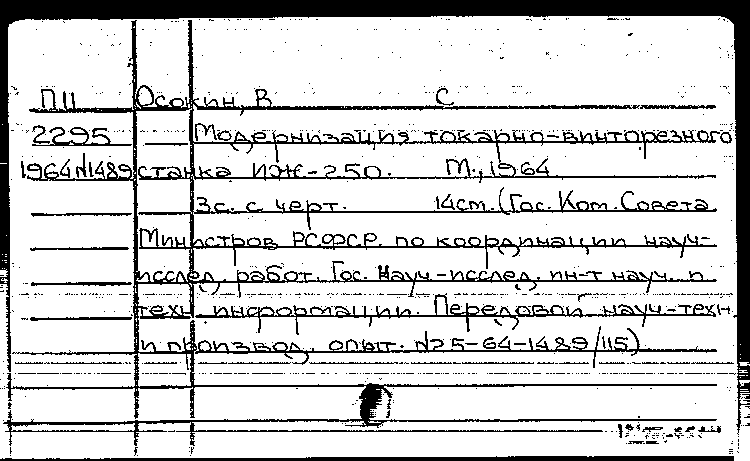 П11 Осокин, В С
2295 — Модернизация токарно-винторезного
1964 №1489 станка ИЖ-250. М., 1964
3с. с черт. 14см. (Гос. Ком. Совета
Министров РСФСР. по координации науч-
исслед. работ. Гос. Науч-исслед. ин-т науч. и
техн информации. Передовой науч-техн.
и производ. опыт. №25-64-1489/115)